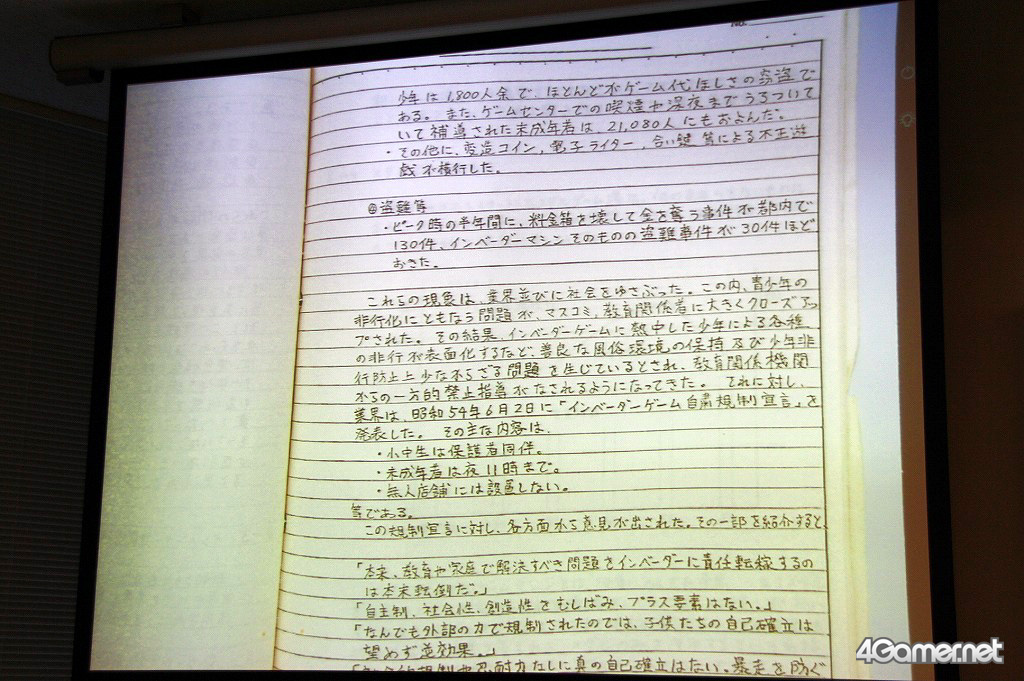 No.
少年は1,800人余で、ほとんどがゲーム代ほしさの窃盗で
ある。また、ゲームセンターでの喫煙や深夜までうろついて
いて補導された未成年者は、21,080人にもおよんだ。
・その他に、変造コイン、電子ライター、合い鍵等による不正遊
戯が横行した。
④盗難等
・ピーク時の半年間に、料金箱を壊して金を奪う事件が都内で
130件、インベーダーマシンそのものの盗難事件が30件ほど
おきた。
これらの現象は、業界並びに社会をゆさぶった。この内、青少年の
非行化にともなう問題が、マスコミ、教育関係者に大きくクローズアッ
プされた。その結果、インベーダーゲームに熱中した少年による各種
の非行が表面化するなど、善良な風俗環境の保持及び少年非
行防止上少なからざる問題を生じているとされ、教育関係機関
からの一方的禁止指導がなされるようになってきた。それに対し、
業界は、昭和54年6月2日に「インベーダーゲーム自粛規制宣言」を
発表した。その主な内容は、
・小中生は保護者同伴。
・未成年者は夜11時まで。
・無人店舗には設置しない。
等である。
この規制宣言に対し、各方面から意見が出された。その一部を紹介すると、
「本来、教育や家庭で解決すべき問題をインベーダーに責任転稼するの
は本末転倒だ。」
「自主制、社会性、創造性をむしばみ、プラス要素はない。」
「なんでも外部の力で規制されたのでは、子供たちの自己確立は
望めず逆効果。」
規制や忍耐力なしに真の自己確立はない。暴走を防ぐ
4Gamer.net